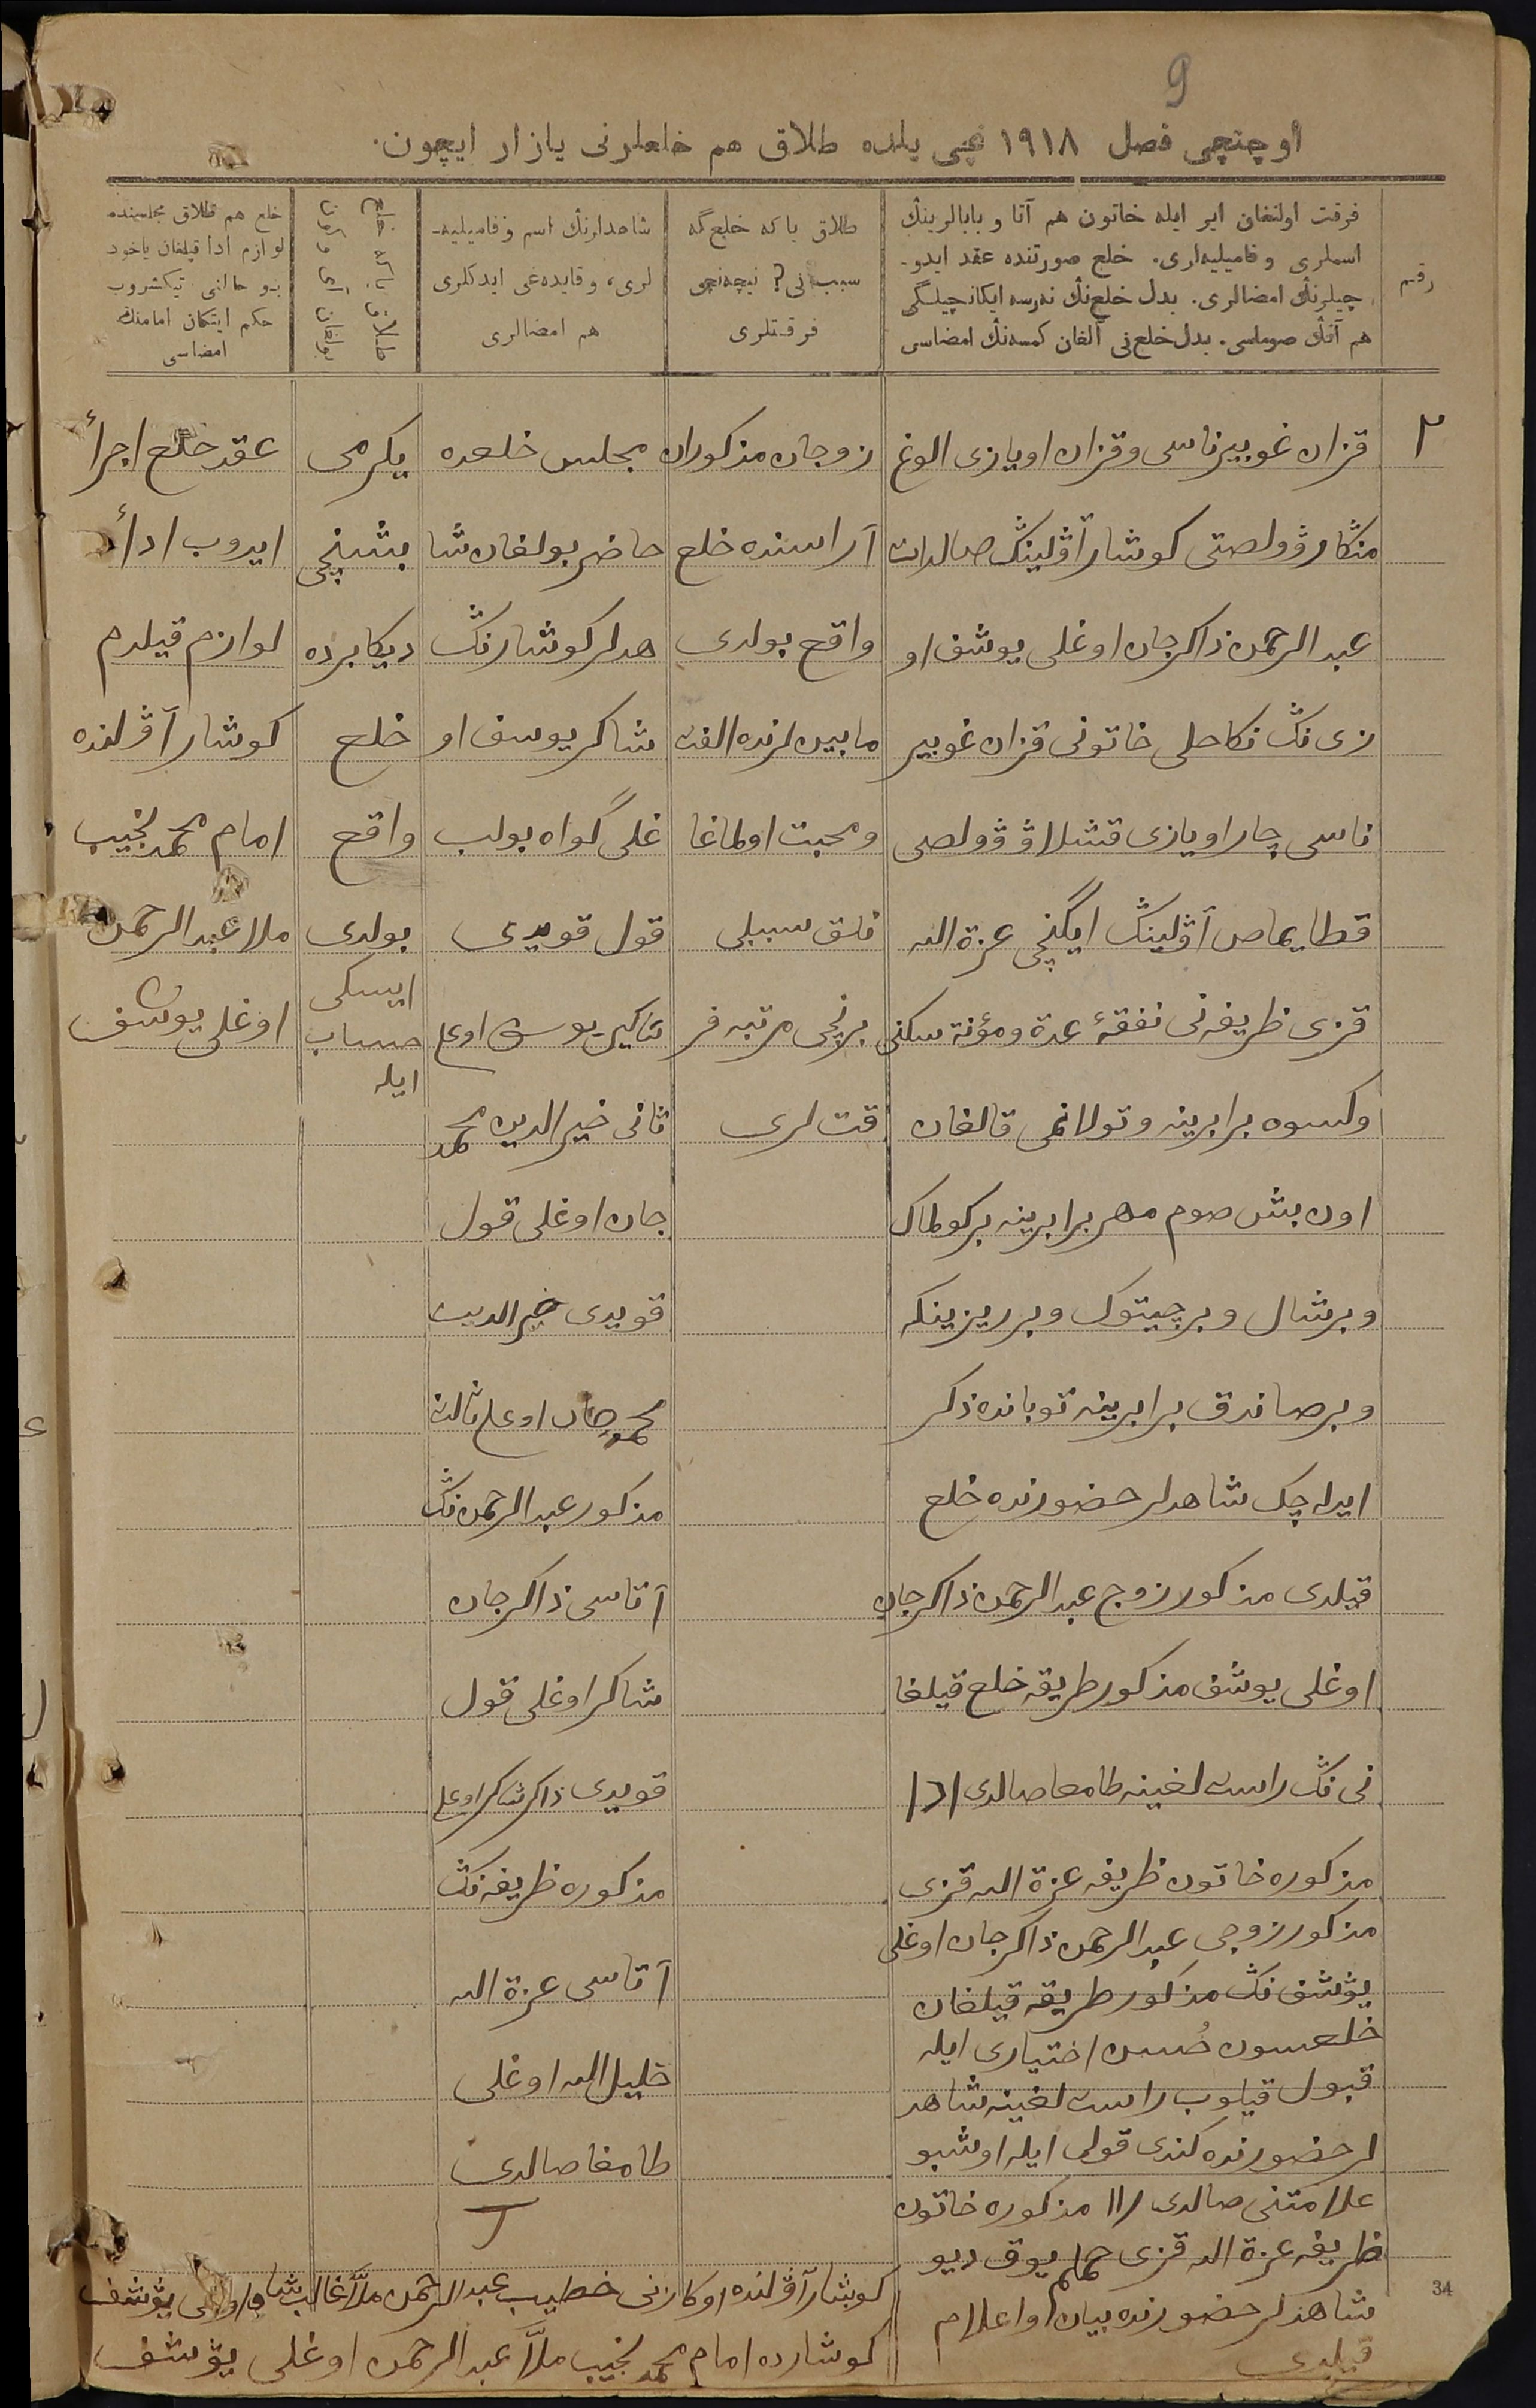 9
اوچنچی فصل ۱۹۱۸ نچی یلده طلاق هم خلعلرنی یازار ایچون.
رقم
فرقت اولنغان ایر ایله خاتون هم آتا و بابالرینڭ
اسملری و فامیلیه‌لری. خلع صورتنده عقد ایدو-
چیلرنڭ امضالری. بدل خلع‌نڭ نه‌رسه ایکانچیلگی
هم آنڭ صوماسی. بدل خلع‌نی آلغان کمسه‌نڭ امضاسی
طلاق یا که خلع‌گه
سبب نی؟ نیچه‌نچی
فرقتلری
شاهدلرنڭ اسم و فامیلیه-
لری، و قایده‌غی ایدکلری
هم امضالری
طلاق یا که خلع
خلع هم طلاق مجلسنده
لوازم ادا قیلغان یاخود
بو حالنی تیکشروب
حکم ایتکان امامنڭ
امضاسی
۲
قزان غوبیرناسی و قزان اویازی الوغ
منگار ۋولصتی کوشار آۋلینڭ صالدات
عبد الرحمن ذاکرجان اوغلی یوشف او
زی نڭ نکاحلی خاتونی قزان غوبیر
ناسی چار اویازی قشلاۋ ۋولصی
قطایماص آۋلینڭ ایگنچی عزة الله
قزی ظریفه‌نی نفقهٔ عدة و مؤنة سکنی
وکسوه برابرینه و تولانمی قالغان
اون بش صوم مهر برابرینه بر کولماک
و بر شال و بر چیتوک و بر ریزینکه
و بر صاندق برابرینه توبانده ذکر
ایدله چک شاهدلر حضورنده خلع
قیلدی مذکور زوج عبد الرحمن ذاکرجان
اوغلی یوشف مذکور طریقه خلع قیلغا
نی نڭ راست لغینه طامغا صالدی
مذکوره خاتون ظریفه عزة الله قزی
مذکور زوجی عبد الرحمن ذاکرجان اوغلی
یوشف نڭ مذکور طریقه قیلغان
خلعسون حُسن اختیاری ایله
قبول قیلوب راست لغینه شاهد
لر حضورنده کندی قولی ایله اوشبو
علامتنی صالدی مذکوره خاتون
ظریفه عزة الله قزی حملم یوق دیو
شاهدلر حضورنده بیان و اعلام
قیلدی
زوجان مذکوران
آراسنده خلع
واقع بولدی
مابین لرنده الفت
و محبت اولماغا
نلق سببلی
برنچی مرتبه فر
قت لری
مجلس خلعده
حاضر بولغان شا
هدلر کوشارنڭ
شاکر یوسف او
غلی گواه بولب
قول قویدی
شاکیر یوسف اوغلی
ثانی خیر الدین محمد
جان اوغلی قول
قویدی خیر الدین
محمد جان اوغلی ثالث
مذکور عبد الرحمن نڭ
آتاسی ذاکرجان
شاکر اوغلی قول
قویدی ذاکر شاکر اوغلی
مذکوره ظریفه نڭ
آتاسی عزة الله
خلیل الله اوغلی
طامغا صالدی
یکرمی
بشنچی
دیکابرده
خلع
واقع
بولدی
ایسکی
حساب
ایله
عقد خلع اجرأ
ایدوب ادأ
لوازم قیلدم
کوشار آۋلنده
امام محمد نجیب
ملا عبد الرحمن
اوغلی یوشف
کوشار آۋلنده اوکازنی خطیب عبد الرحمن ملا غالب شاه اوغلی یوشف
کوشارده امام محمد نجیب ملا عبد الرحمن اوغلی یوشف
34